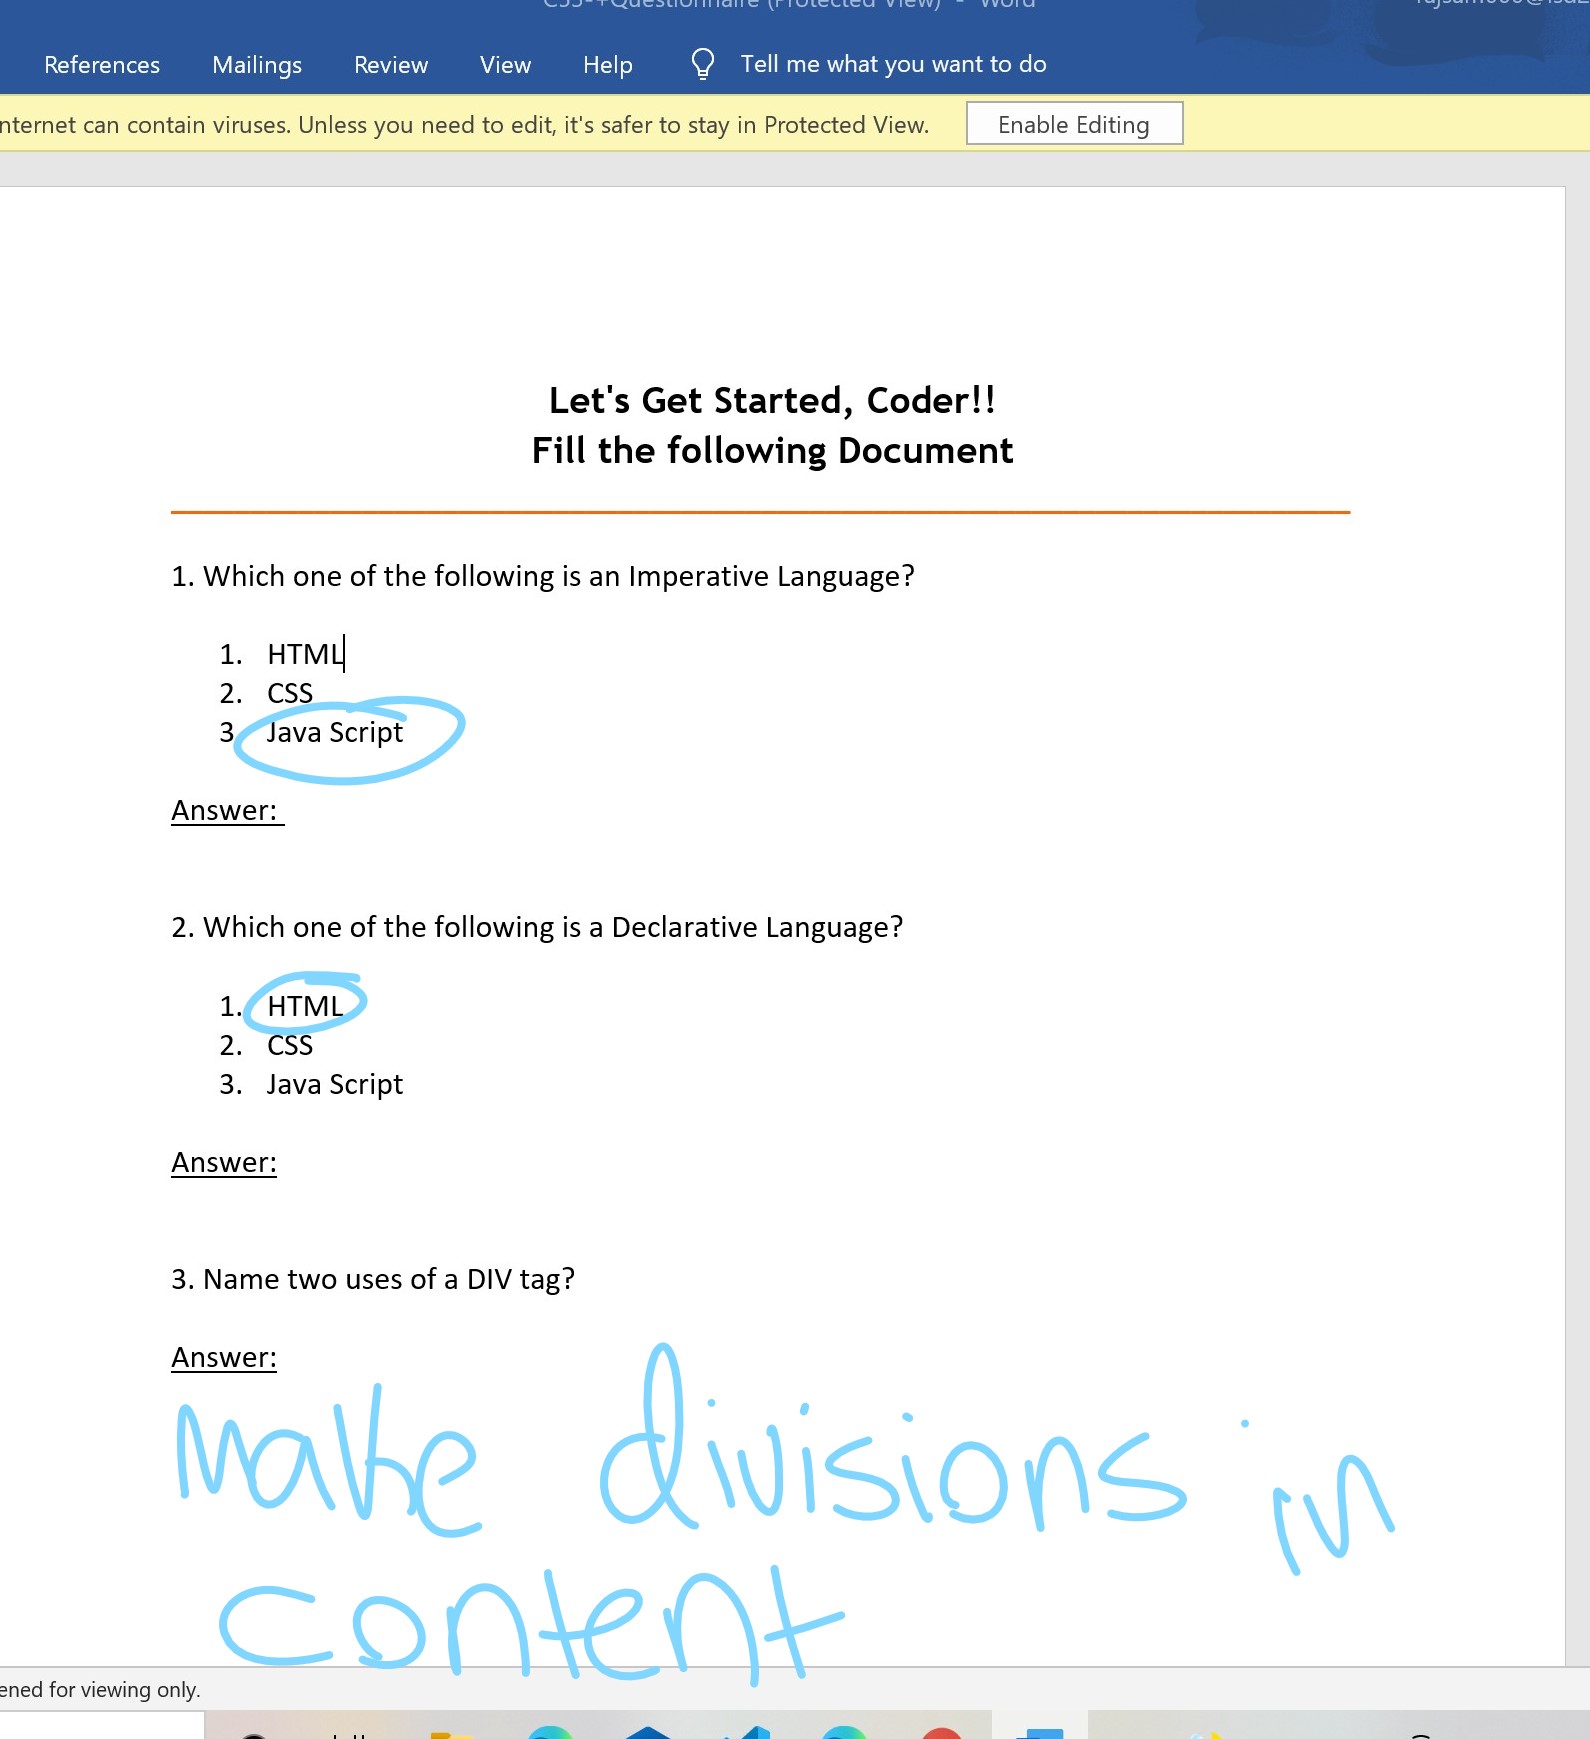 References Mailings Review View Help Tell me what you want to do
nternet can contain viruses. Unless you need to edit, it's safer to stay in Protected View. Enable Editing
Let's Get Started, Coder!!
Fill the following Document
1. Which one of the following is an Imperative Language?
1. HTML
2. CSS
3 Java Script
Answer:
2. Which one of the following is a Declarative Language?
1. HTML
2. CSS
3. Java Script
Answer:
3. Name two uses of a DIV tag?
Answer:
make divisions in
content
ened for viewing only.